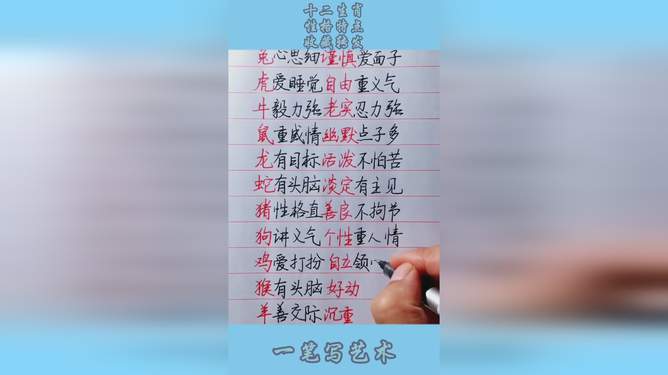 十二生肖
性格特点
收藏转发
兔心思细谨慎爱面子
虎爱睡觉自由重义气
牛毅力强老实忍力强
鼠重感情幽默点子多
龙有目标活泼不怕苦
蛇有头脑淡定有主见
猪性格直善良不拘节
狗讲义气个性重人情
鸡爱打扮自立领
猴有头脑好动
羊善交际沉重
一笔写艺术